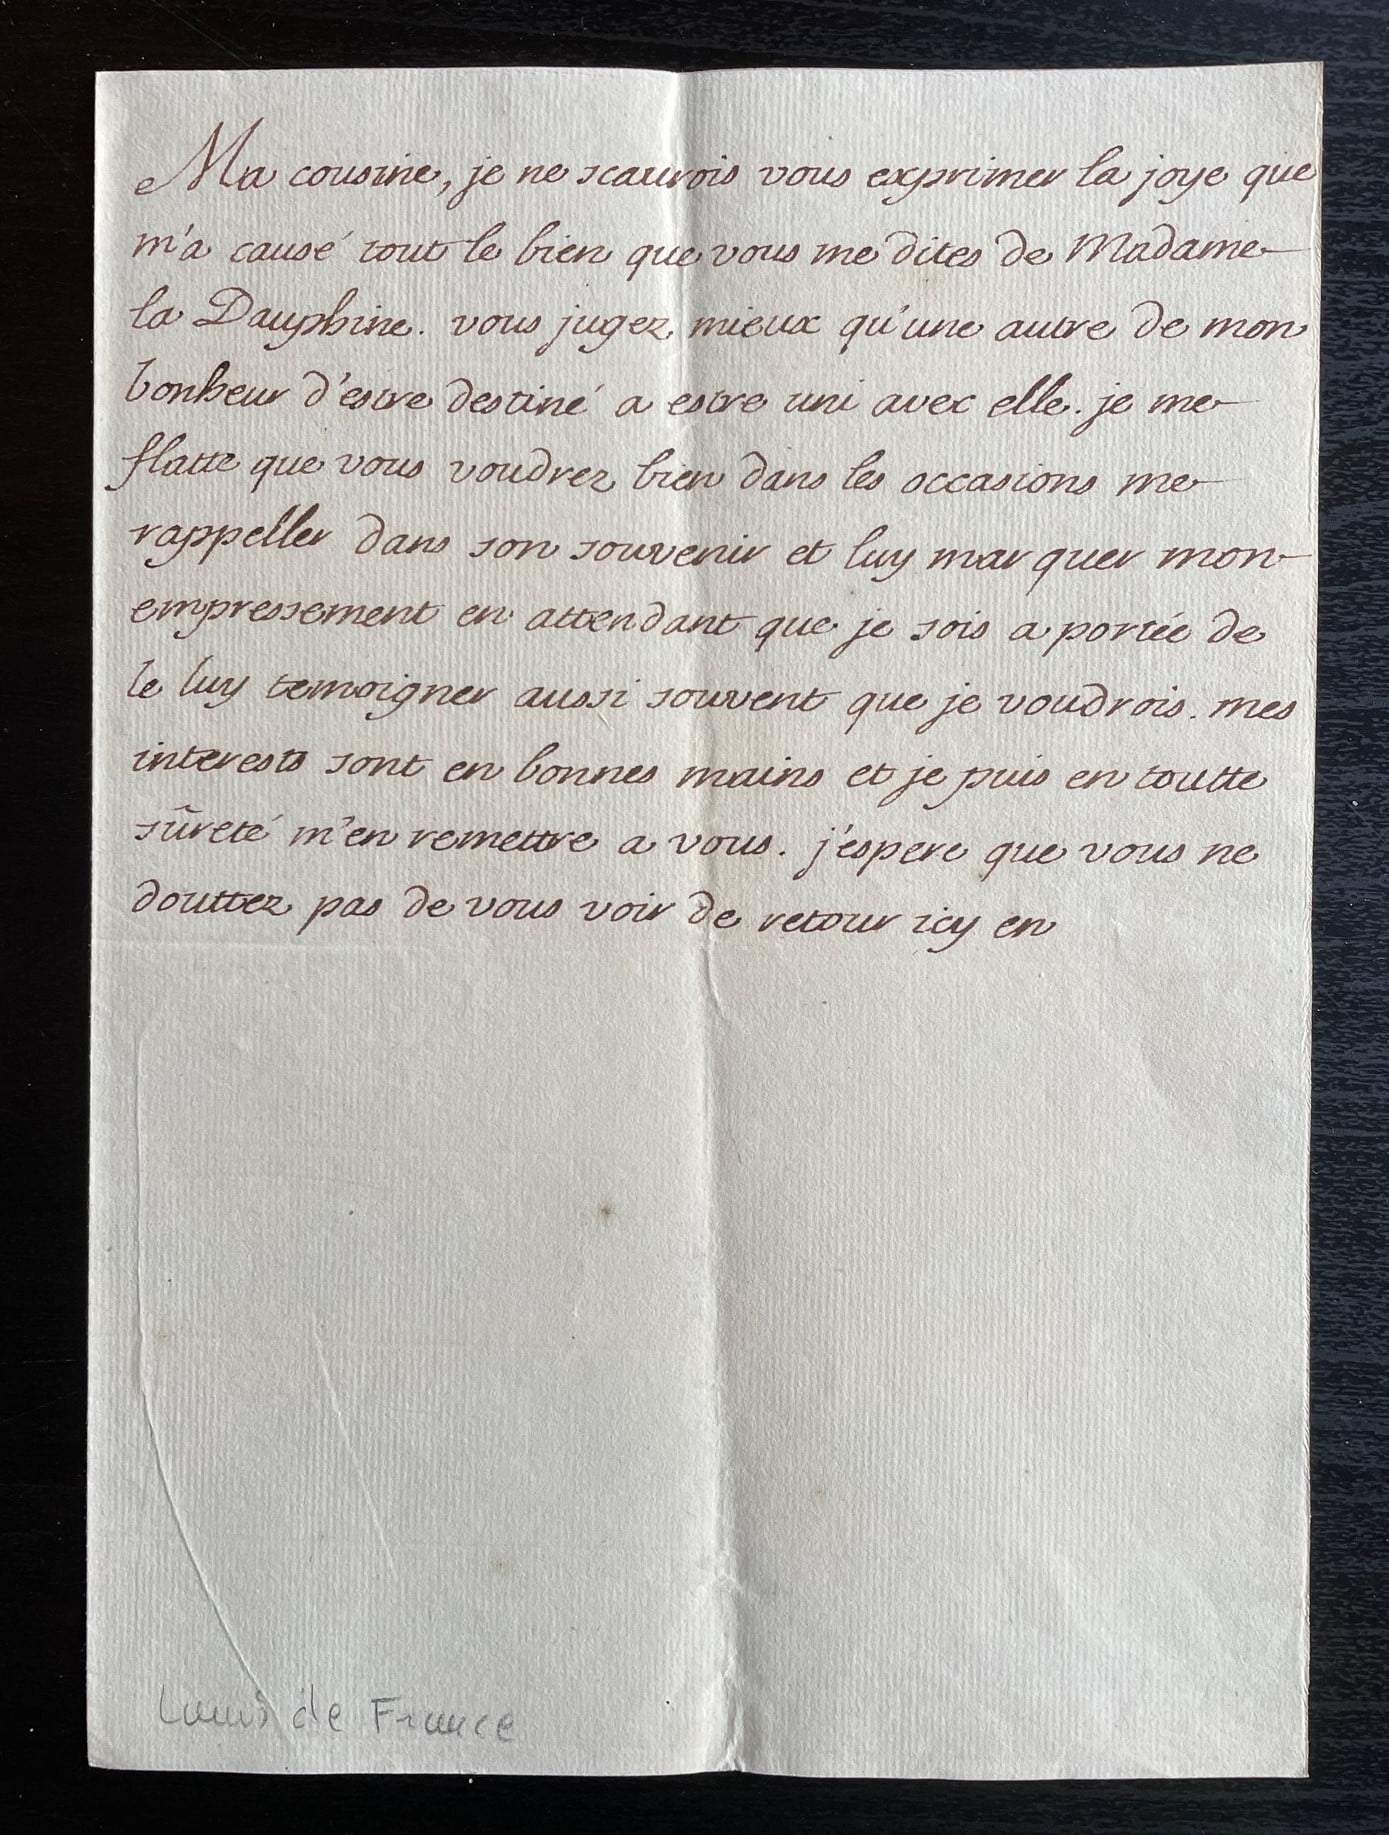 Ma cousine, je ne scaurois vous exprimer la joye que
m'a causé tout le bien que vous me dites de Madame
la Dauphine. vous jugez mieux qu'une autre de mon
bonheur d'estre destiné a estre uni avec elle. je me
flatte que vous voudrez bien dans les occasions me
rappeller dans son souvenir et luy marquer mon
empressement en attendant que je sois a portée de
le luy temoigner aussi souvent que je voudrois. mes
interests sont en bonnes mains et je puis en toutte
sûreté m'en remettre a vous. j'espere que vous ne
douttez pas de vous voir de retour icy en
Louis de France